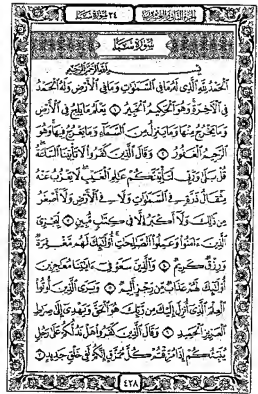 الجزء الثاني والعشرون ٣٤ سورة سبأ
سُورَةُ سَبَإٍ
بِسْمِ ٱللَّهِ ٱلرَّحْمَٰنِ ٱلرَّحِيمِ
ٱلْحَمْدُ لِلَّهِ ٱلَّذِى لَهُۥ مَا فِى ٱلسَّمَٰوَٰتِ وَمَا فِى ٱلْأَرْضِ وَلَهُ ٱلْحَمْدُ
فِى ٱلْءَاخِرَةِ وَهُوَ ٱلْحَكِيمُ ٱلْخَبِيرُ ١ يَعْلَمُ مَا يَلِجُ فِى ٱلْأَرْضِ
وَمَا يَخْرُجُ مِنْهَا وَمَا يَنزِلُ مِنَ ٱلسَّمَآءِ وَمَا يَعْرُجُ فِيهَا وَهُوَ
ٱلرَّحِيمُ ٱلْغَفُورُ ٢ وَقَالَ ٱلَّذِينَ كَفَرُوا۟ لَا تَأْتِينَا ٱلسَّاعَةُ
قُلْ بَلَىٰ وَرَبِّى لَتَأْتِيَنَّكُمْ عَٰلِمِ ٱلْغَيْبِ لَا يَعْزُبُ عَنْهُ
مِثْقَالُ ذَرَّةٍ فِى ٱلسَّمَٰوَٰتِ وَلَا فِى ٱلْأَرْضِ وَلَآ أَصْغَرُ
مِن ذَٰلِكَ وَلَآ أَكْبَرُ إِلَّا فِى كِتَٰبٍ مُّبِينٍ ٣ لِّيَجْزِىَ
ٱلَّذِينَ ءَامَنُوا۟ وَعَمِلُوا۟ ٱلصَّٰلِحَٰتِ أُو۟لَٰٓئِكَ لَهُم مَّغْفِرَةٌ
وَرِزْقٌ كَرِيمٌ ٤ وَٱلَّذِينَ سَعَوْ فِىٓ ءَايَٰتِنَا مُعَٰجِزِينَ
أُو۟لَٰٓئِكَ لَهُمْ عَذَابٌ مِّن رِّجْزٍ أَلِيمٌ ٥ وَيَرَى ٱلَّذِينَ أُوتُوا۟
ٱلْعِلْمَ ٱلَّذِىٓ أُنزِلَ إِلَيْكَ مِن رَّبِّكَ هُوَ ٱلْحَقَّ وَيَهْدِىٓ إِلَىٰ صِرَٰطِ
ٱلْعَزِيزِ ٱلْحَمِيدِ ٦ وَقَالَ ٱلَّذِينَ كَفَرُوا۟ هَلْ نَدُلُّكُمْ عَلَىٰ رَجُلٍ
يُنَبِّئُكُمْ إِذَا مُزِّقْتُمْ كُلَّ مُمَزَّقٍ إِنَّكُمْ لَفِى خَلْقٍ جَدِيدٍ ٧
٤٢٨